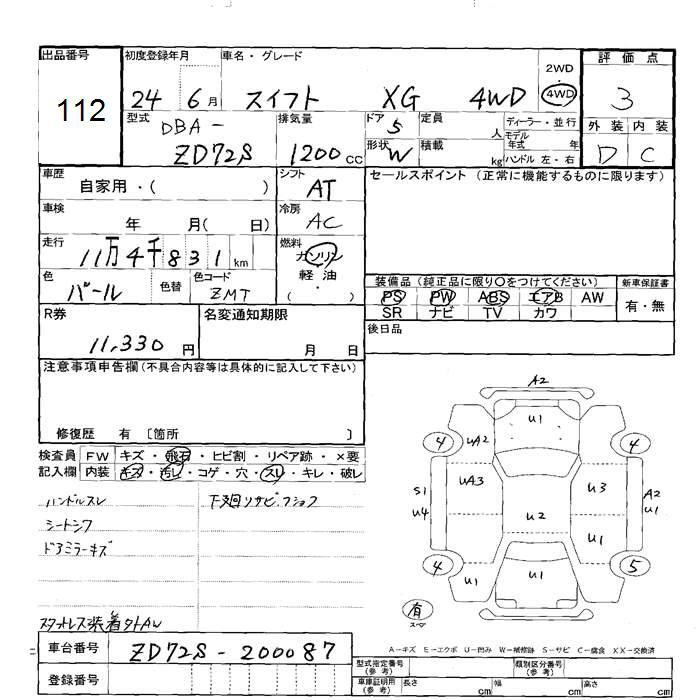 出品番号
112
初度登録年月
24 6月
車名・グレード
スイフト XG 4WD
2WD
・
4WD
評価点
3
外装 内装
D C
型式
DBA-
ZD72S
排気量
1200cc
ドア
5
形状
W
定員
人
積載
kg
ディーラー・並行
モデル
年式 年
ハンドル 左・右
車歴
自家用・( )
シフト
AT
車検
年 月( 日)
冷房
AC
走行
11万4千831km
燃料
ガソリン
軽油
( )
色
パール
色替
色コード
ZMT
R券
11,330円
名変通知期限
月 日
セールスポイント (正常に機能するものに限ります)
装備品(純正品に限り○をつけてください)
PS PW ABS エアB AW
SR ナビ TV カワ
新車保証書
有・無
後日品
注意事項申告欄(不具合内容等は具体的に記入して下さい)
修復歴 有 〔箇所 〕
検査員 FW キズ・飛石・ヒビ割・リペア跡・×要
記入欄 内装 キズ・汚レ・コゲ・穴・スレ・キレ・破レ
ハンドルスレ
シートシワ
ドアミラーキズ
下廻リサビ.フショク
スタットレス装着外AW
A2
U1
4 UA2 4
UA3 U3
S1
U4
A2
U1
U2
U1
4 5
U1 U1 U1
有
スペア
A-キズ E-エクボ U-凹み W-補修跡 S-サビ C-腐食 XX-交換済
車台番号 ZD72S-200087
登録番号
型式指定番号
(参考)
類別区分番号
(参考)
車庫証明用
(参考)
長さ cm 幅 cm 高さ cm